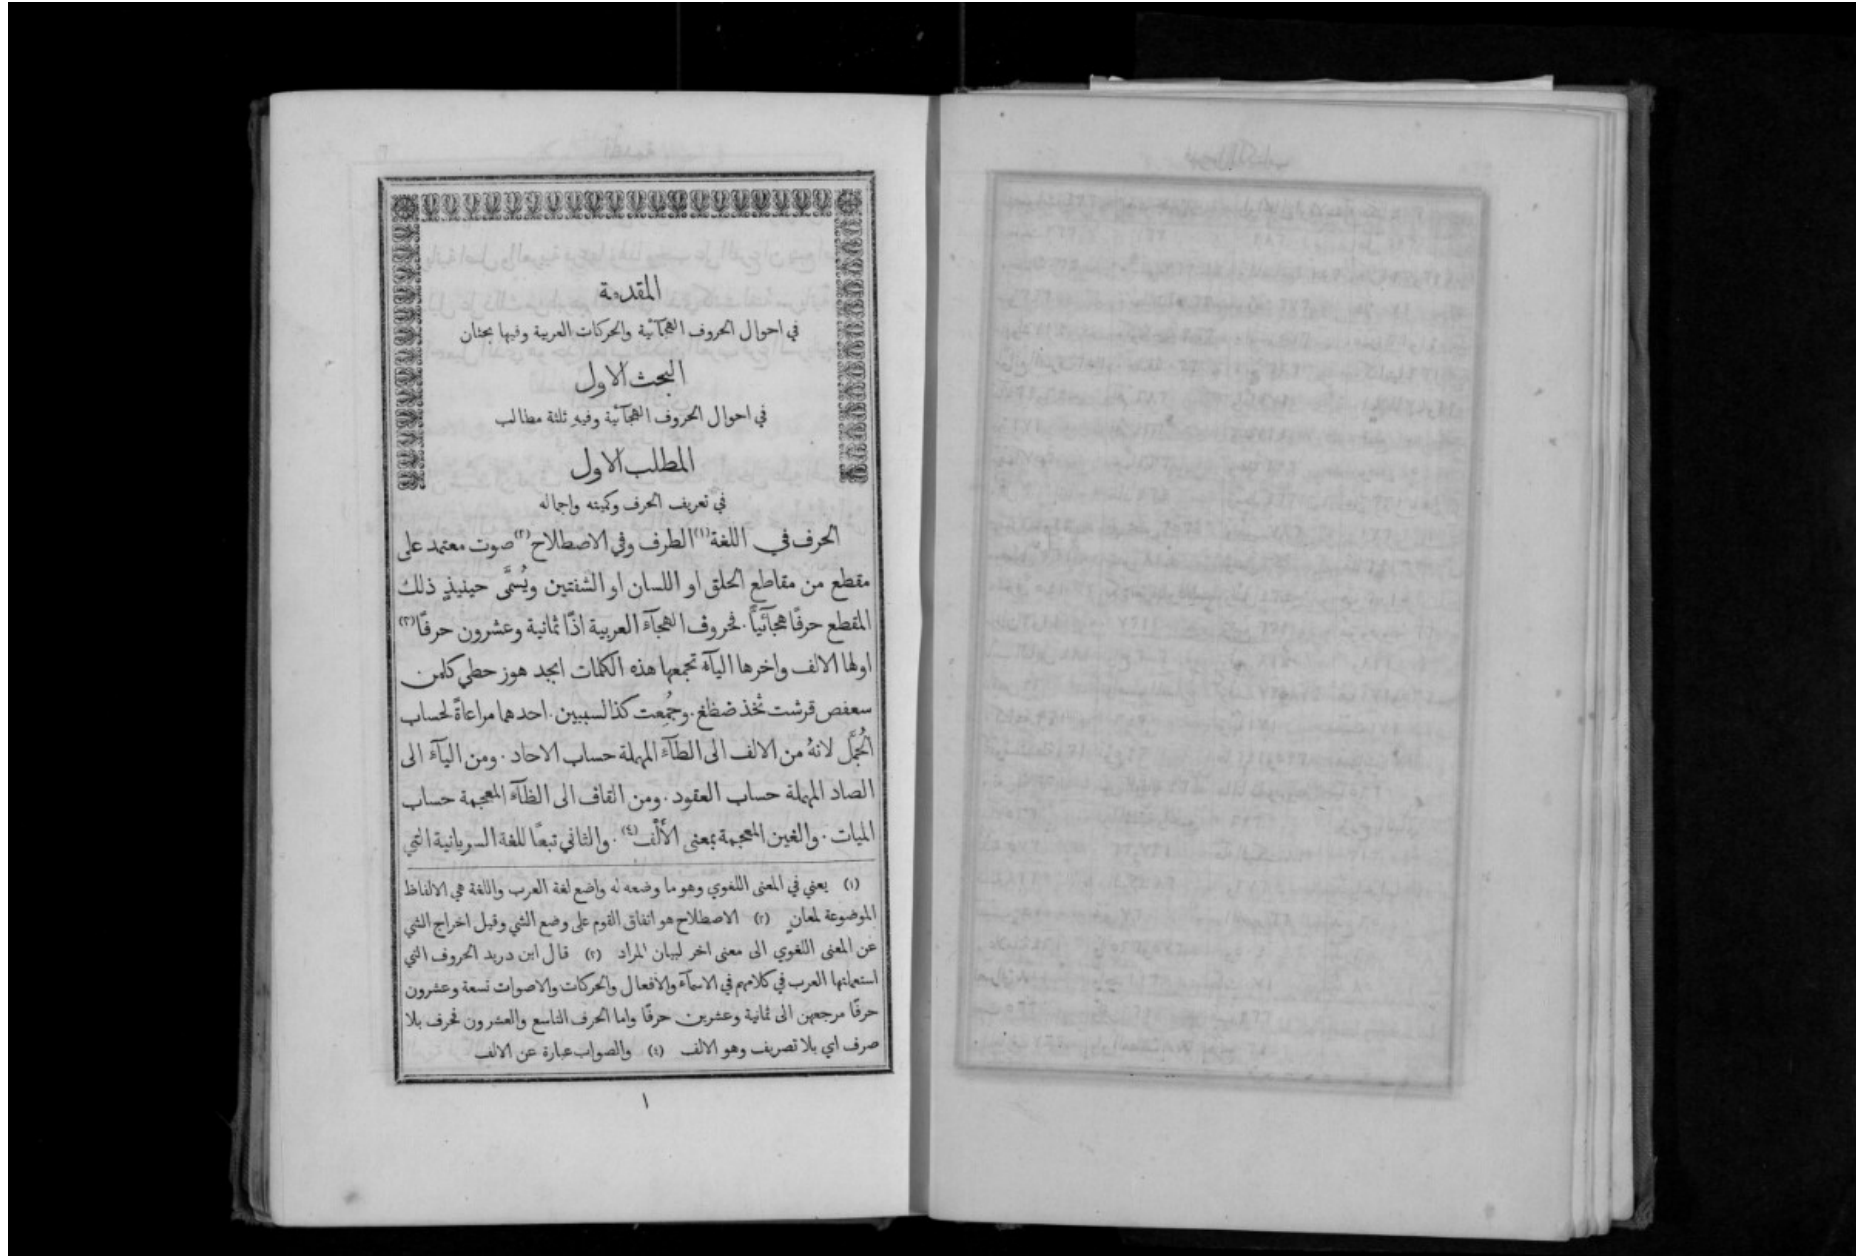 المقدمة
في احوال الحروف الهجآئية والحركات العربية وفيها بحثان
البحث الاول
في احوال الحروف الهجآئية وفيهِ ثلثة مطالب
المطلب الاول
في تعريف الحرف وكميته واجماله
الحرف في اللغة(١) الطرف وفي الاصطلاح(٢) صوت معتمد على
مقطع من مقاطع الحلق او اللسان او الشفتين ويُسمَّى حينيذٍ ذلك
المقطع حرفًا هجآئيًّا. فحروف الهجآءِ العربية اذًا ثمانية وعشرون حرفًا(٣)
اولها الالف واخرها اليآء تجمعها هذه الكلمات ابجد هوز حطي كلمن
سعفص قرشت ثخذ ضظغ. وجُمِعت كذا لسببين. احدهما مراعاةً لحساب
الجُمَّل لانهُ من الالف الى الطآءِ المهملة حساب الاحاد. ومن اليآءِ الى
الصاد المهملة حساب العقود. ومن القاف الى الظآءِ المعجمة حساب
الميات. والغين المعجمة بمعنى الأَلْف(٤). والثاني تبعًا للغة السريانية التي
(١) يعني في المعنى اللغوي وهو ما وضعه له واضع لغة العرب واللغة هي الالفاظ
الموضوعة لمعانٍ (٢) الاصطلاح هو اتفاق القوم على وضع الشي وقيل اخراج الشي
عن المعنى اللغوي الى معنى اخر لبيان المراد (٣) قال ابن دريد الحروف التي
استعملتها العرب في كلامهم في الاسمآءِ والافعال والحركات والاصوات تسعة وعشرون
حرفًا مرجعهن الى ثمانية وعشرين حرفًا واما الحرف التاسع والعشرون فحرف بلا
صرف اي بلا تصريف وهو الالف (٤) والصواب عبارة عن الالف
١